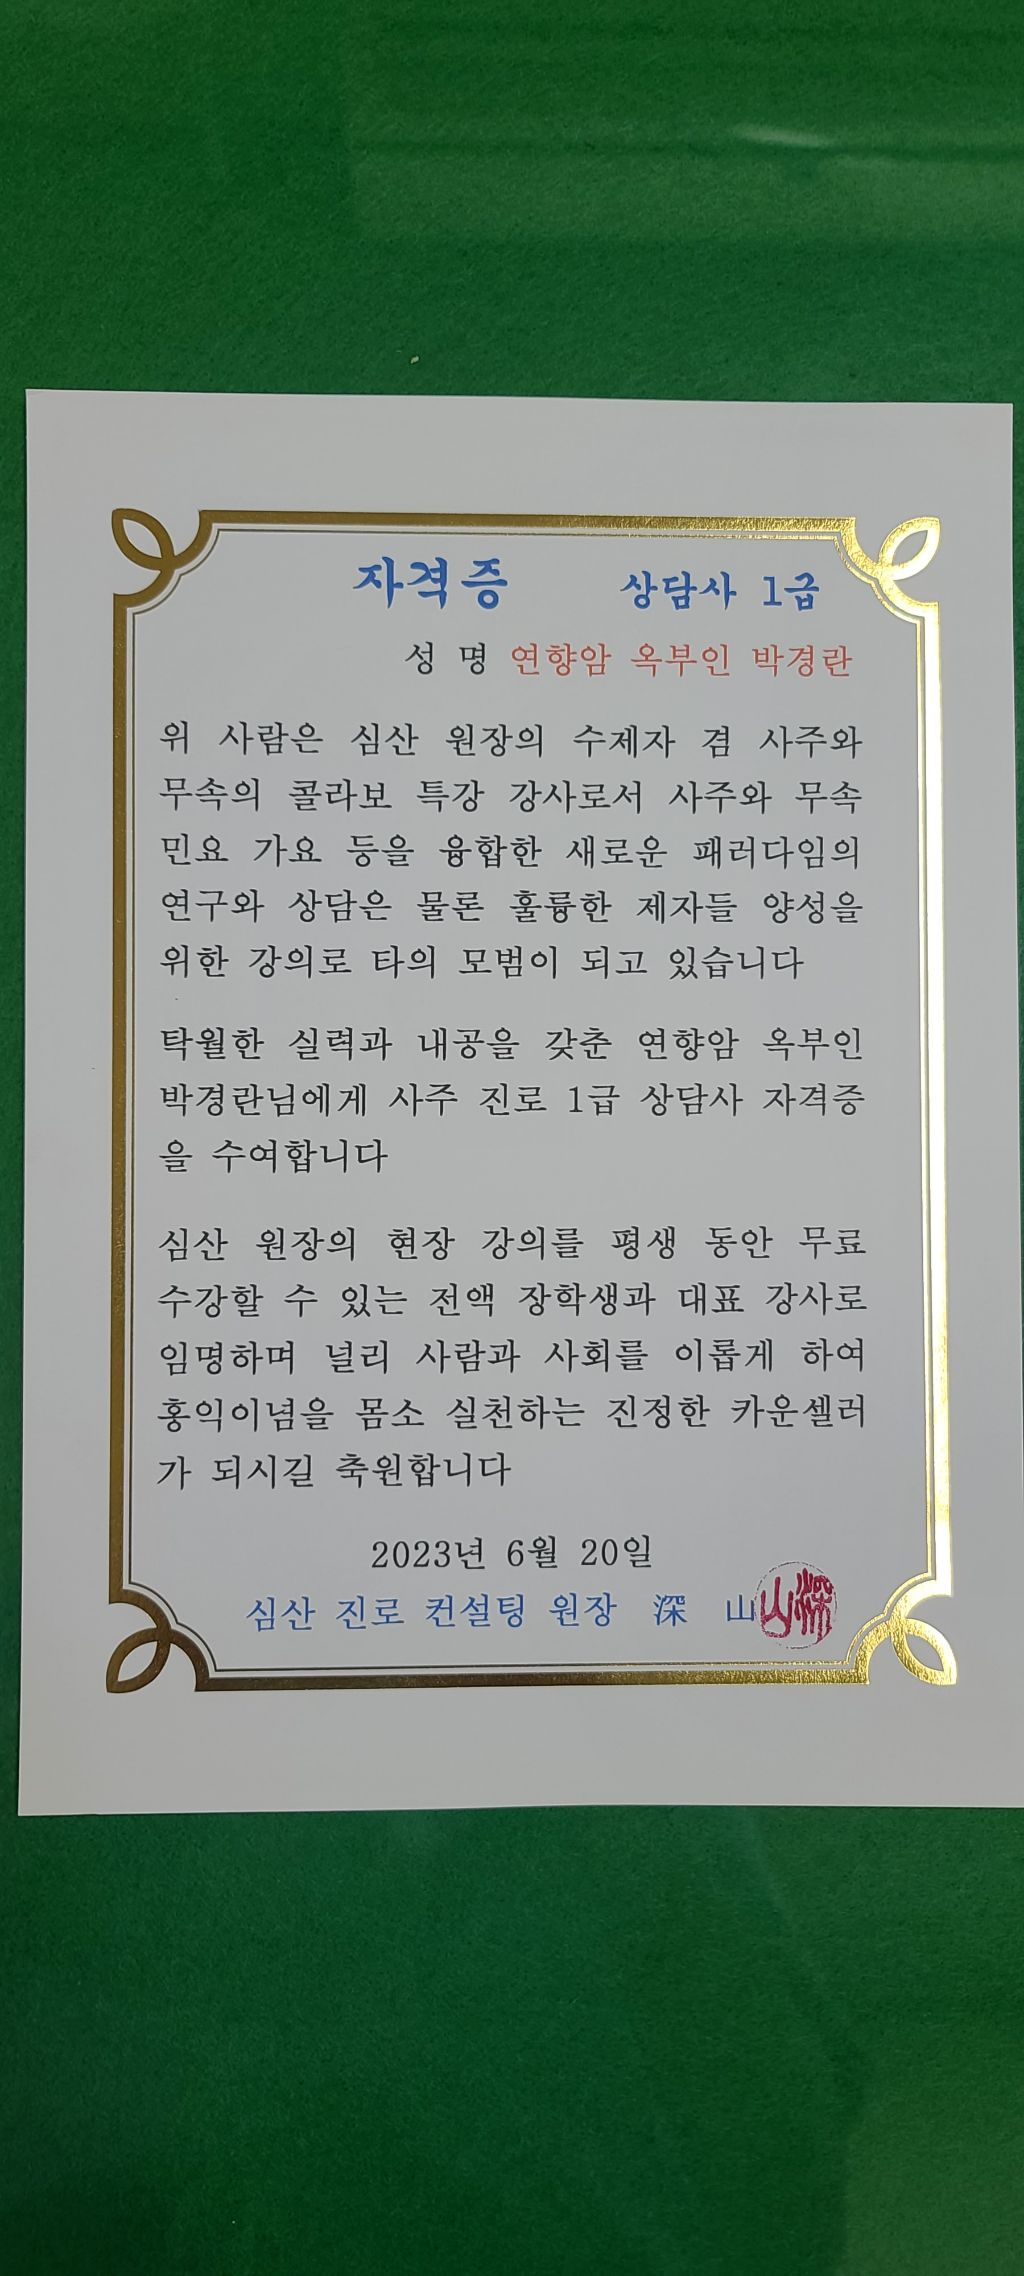 자격증 상담사 1급
성 명 연향암 옥부인 박경란
위 사람은 심산 원장의 수제자 겸 사주와
무속의 콜라보 특강 강사로서 사주와 무속
민요 가요 등을 융합한 새로운 패러다임의
연구와 상담은 물론 훌륭한 제자들 양성을
위한 강의로 타의 모범이 되고 있습니다
탁월한 실력과 내공을 갖춘 연향암 옥부인
박경란님에게 사주 진로 1급 상담사 자격증
을 수여합니다
심산 원장의 현장 강의를 평생 동안 무료
수강할 수 있는 전액 장학생과 대표 강사로
임명하며 널리 사람과 사회를 이롭게 하여
홍익이념을 몸소 실천하는 진정한 카운셀러
가 되시길 축원합니다
2023년 6월 20일
심산 진로 컨설팅 원장 深 山